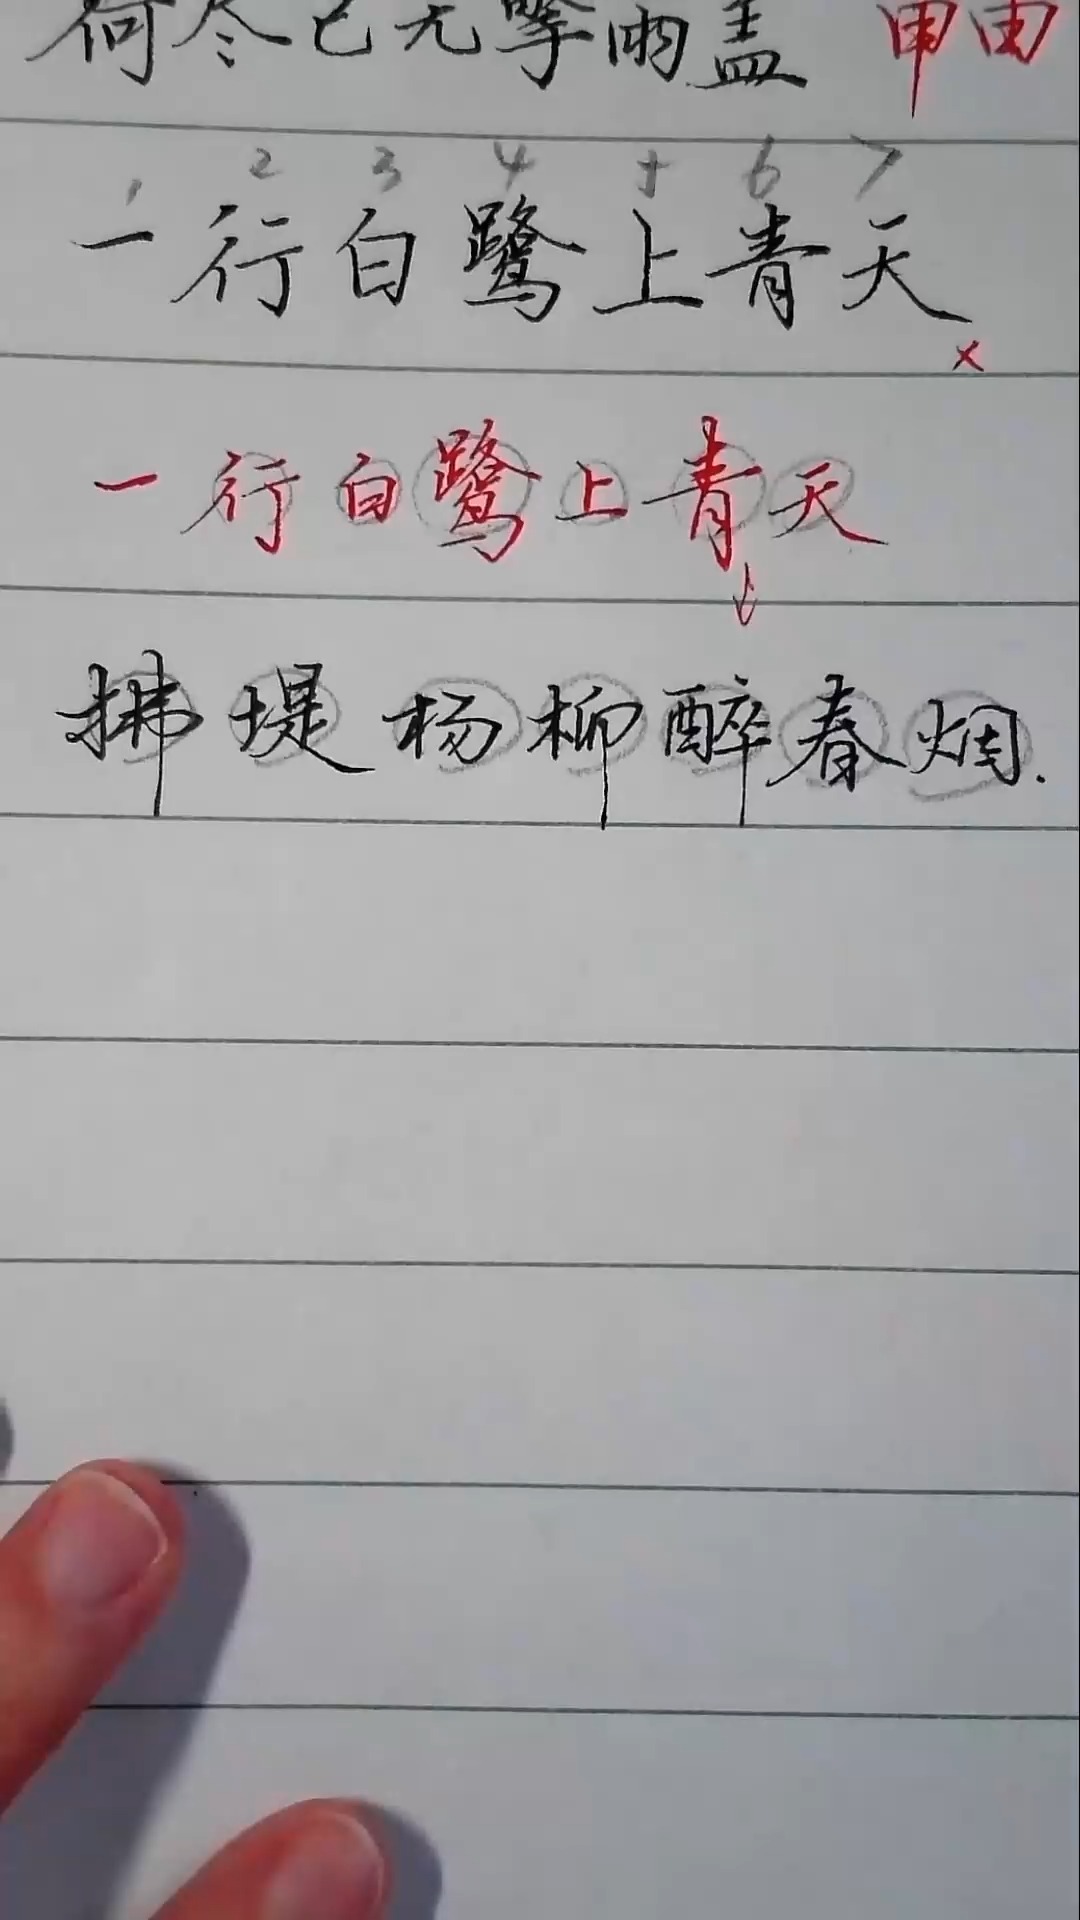 荷尽已无擎雨盖 甲由
1 2 3 4 5 6 7
一行白鹭上青天
×
一行白鹭上青天
拂堤杨柳醉春烟.